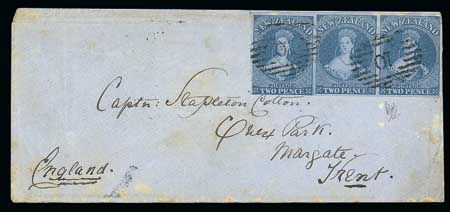 NEW ZEALAND NEW ZEALAND NEW ZEALAND
POSTAGE POSTAGE POSTAGE
TWO PENCE TWO PENCE TWO PENCE
Captn: Stapleton Cotton.
Quex Park.
Margate.
Kent.
England.